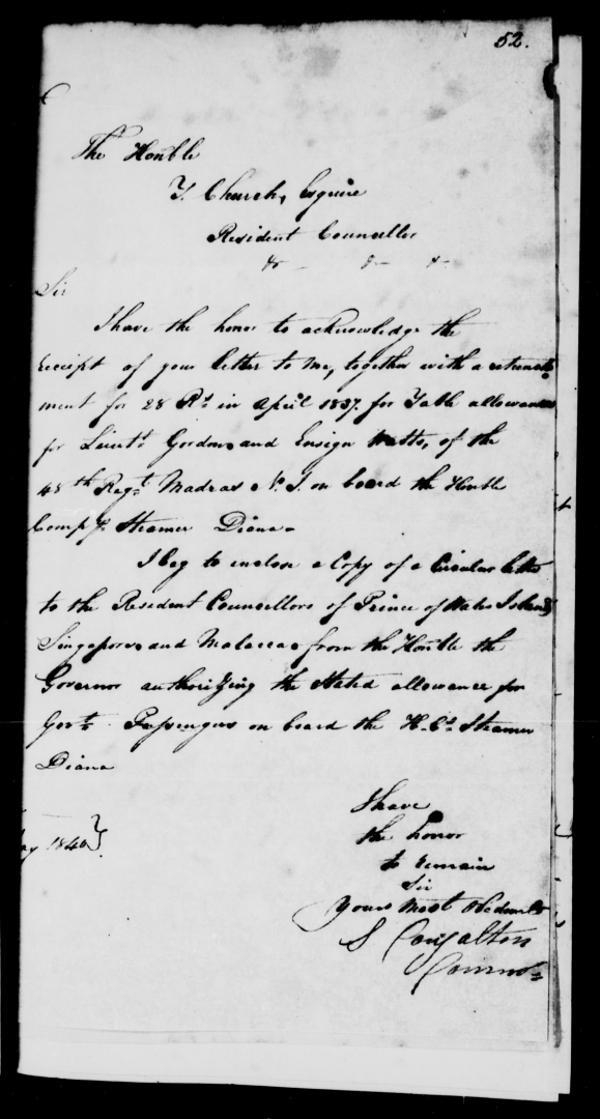 52.
The Honble
T. Church, Esquire
Resident Councellor
&c - &c - &c -
Sir
I have the honor to acknowledge the
receipt of your letter to me, together with a retrench
ment for 28 Rs. in April 1837. for Table allowance
for Lieutt. Gordon, and Ensign Watts, of the
48th Regt. Madras N. I. on board the Honble
Comp ys. Steamer Diana.
I beg to enclose a Copy of a Circular letter
to the Resident Councellors of Prince of Wales Island,
Singapore, and Malacca, from the Honble the
Governor authorizing the Stated allowance for
Govt. Passengers on board the H. Cs. Steamer
Diana
I have
the honor
1840
to remain
Sir
Yours Most Obedient
S Congalton
Comm